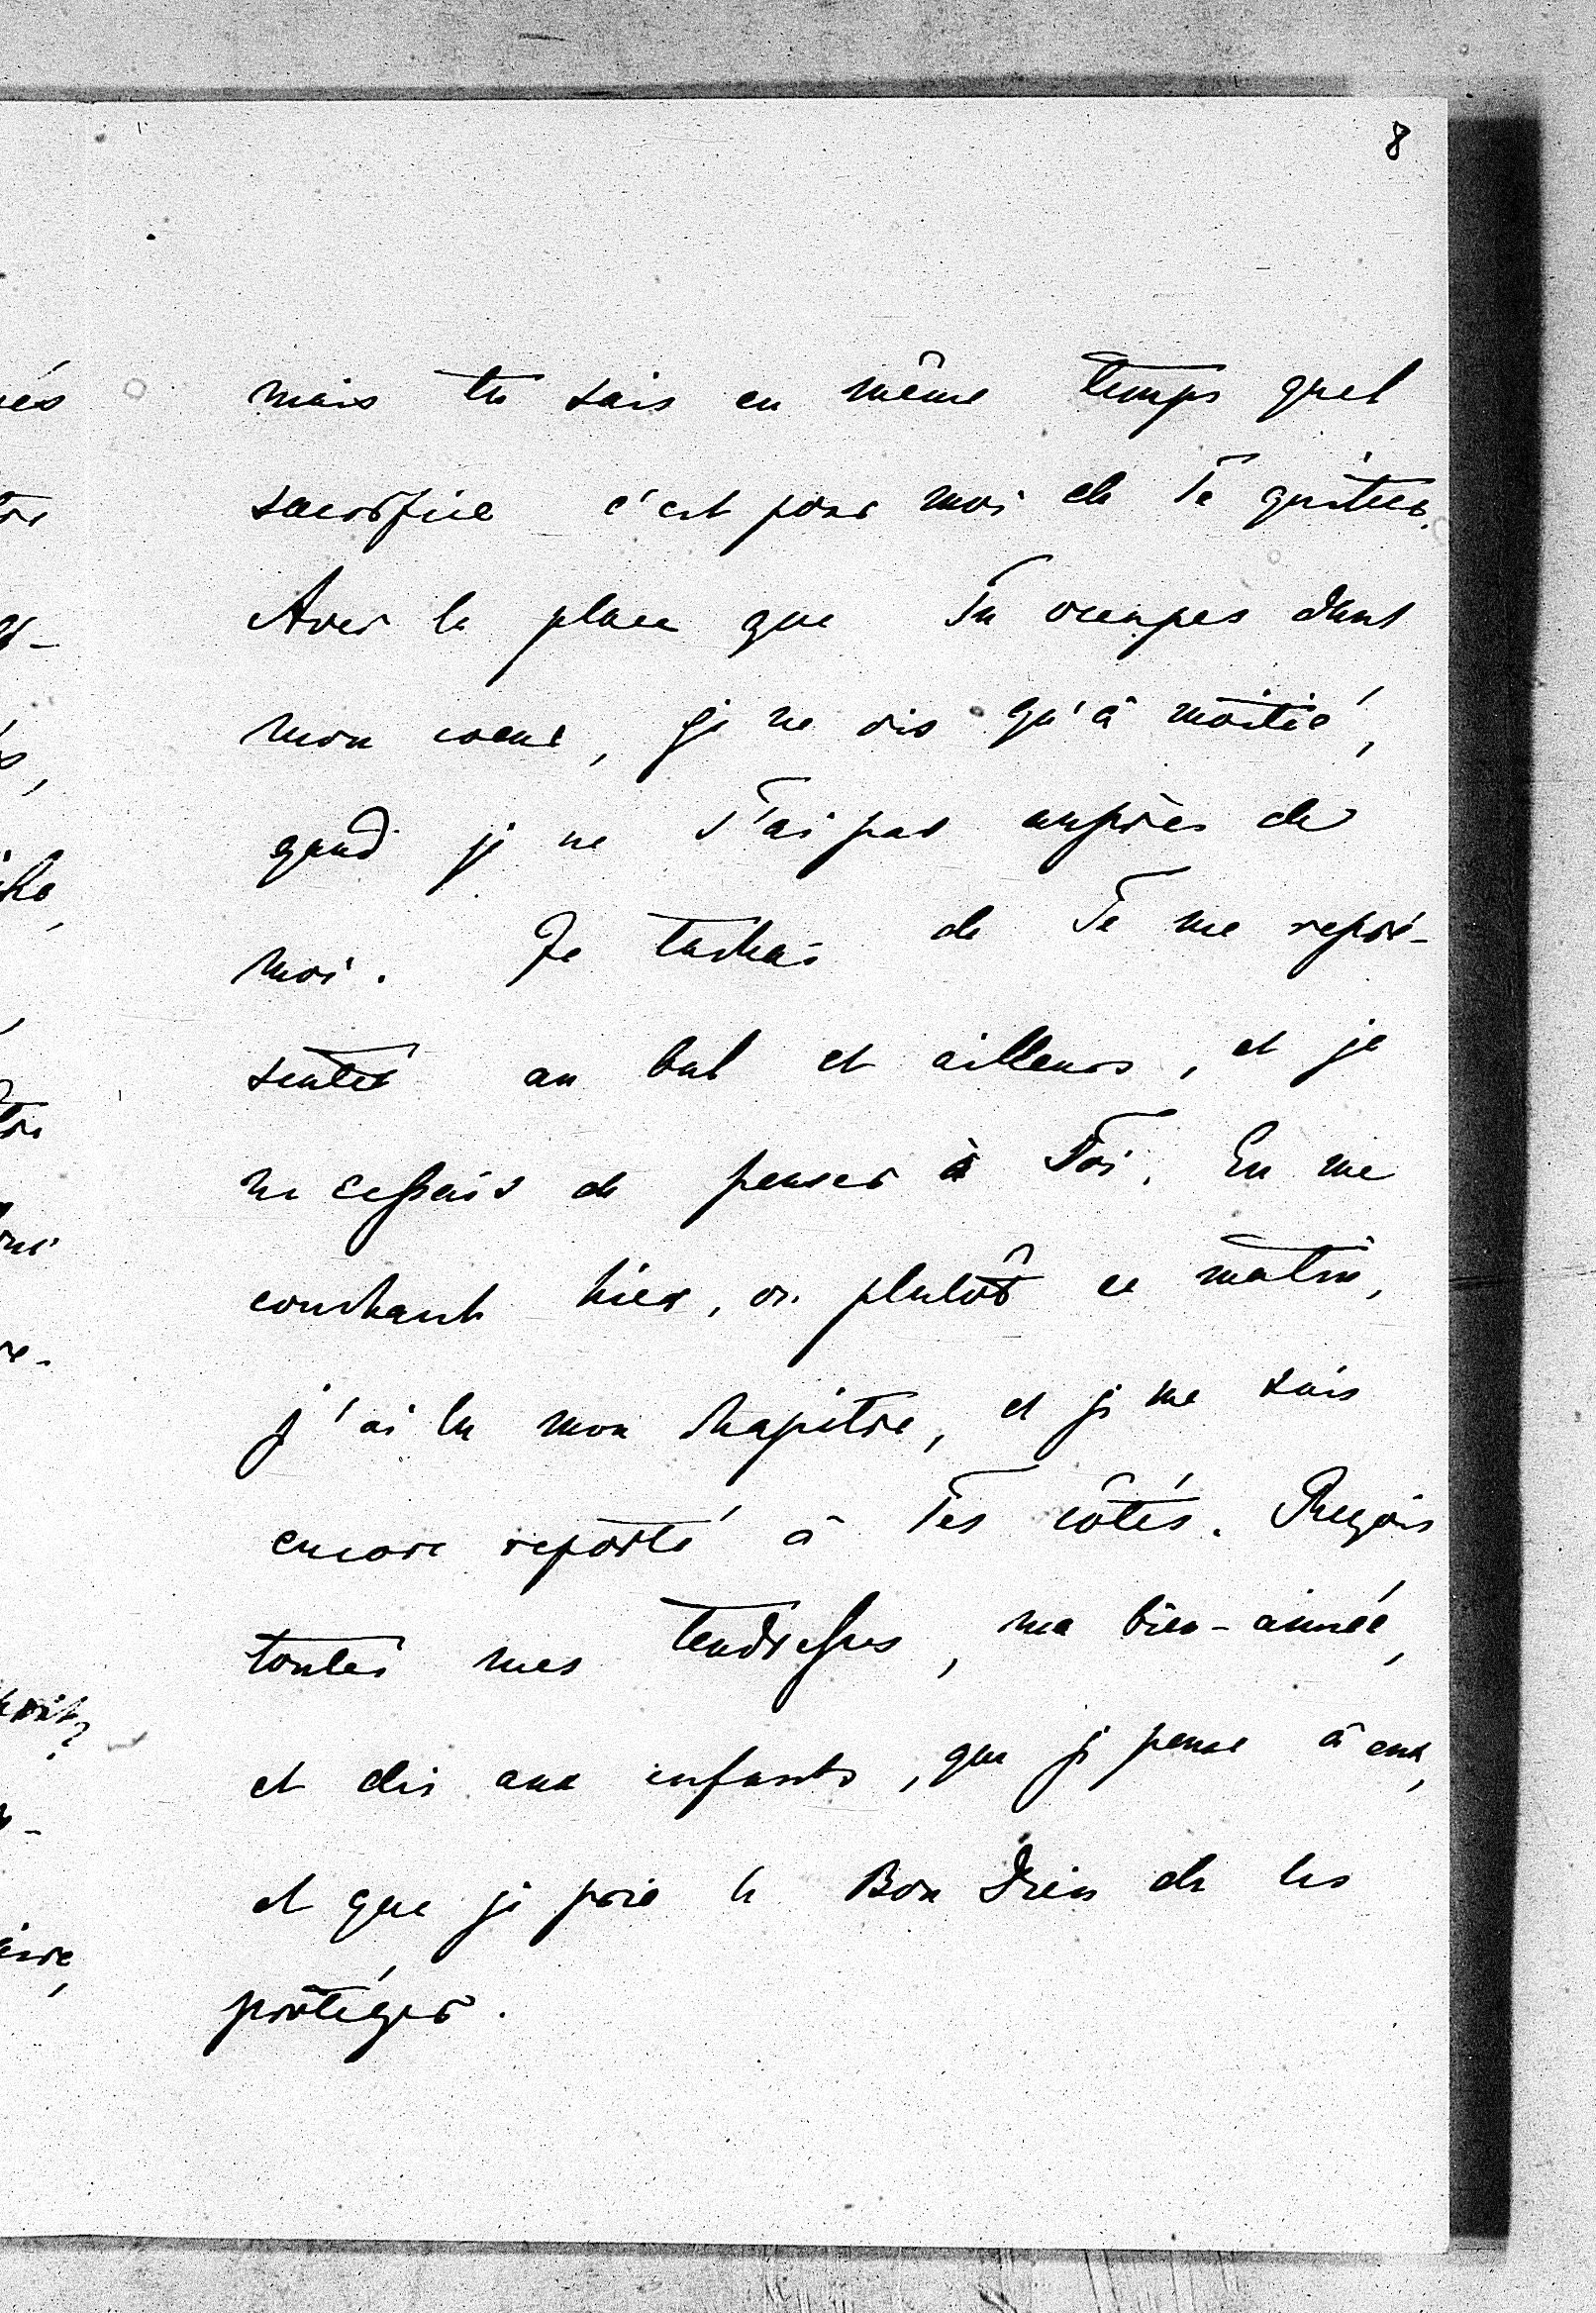 8
mais tu sais en même temps quel
sacrifice c'est pour moi de Te quitter.
Avec la place que Tu occupes dans
mon coeur, je ne vis qu'à moitié,
quand je ne T'ai pas auprès de
moi. Je tachai de Te me repré-
senter au bal et ailleurs, et je
ne cessais de penser à Toi. En me
couchant hier, ou plutôt ce matin,
j'ai lu mon chapitre, et je me suis
encore reporté à Tes côtés. Reçois
toutes mes tendresses, ma bien-aimée,
et dis aux enfants, que je pense à eux,
et que je prie le Bon Dieu de les
protéger.